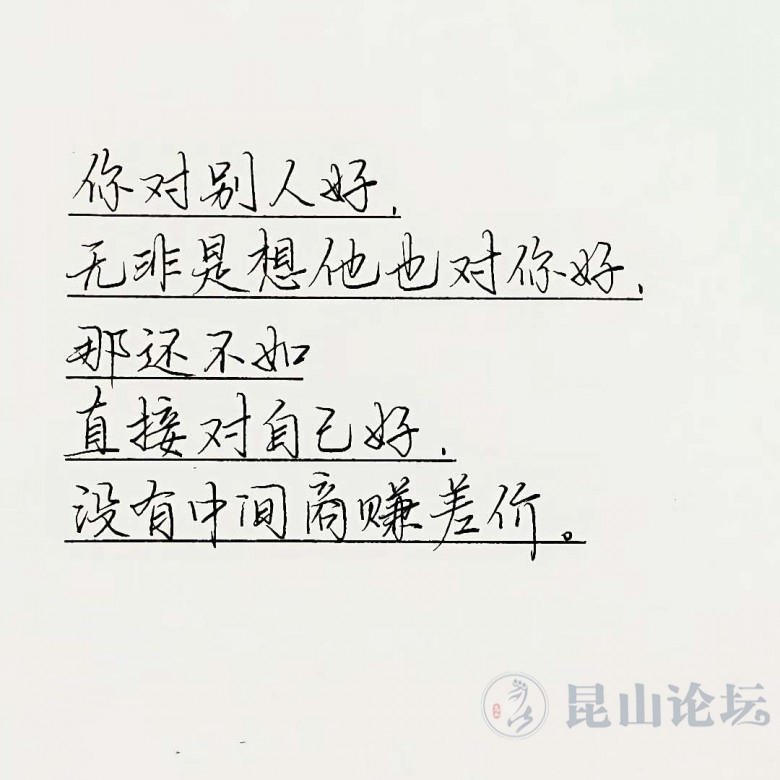 你对别人好,
无非是想他也对你好,
那还不如
直接对自己好,
没有中间商赚差价。
昆山论坛